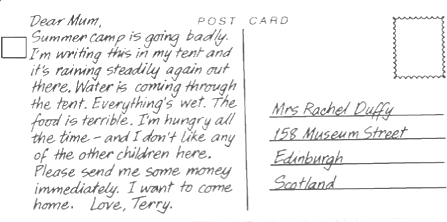 POST CARD
Dear Mum,
Summer camp is going badly.
I'm writing this in my tent and
it's raining steadily again out
there. Water is coming through
the tent. Everything's wet. The
food is terrible. I'm hungry all
the time – and I don't like any
of the other children here.
Please send me some money
immediately. I want to come
home. Love, Terry.
Mrs Rachel Duffy
158 Museum Street
Edinburgh
Scotland